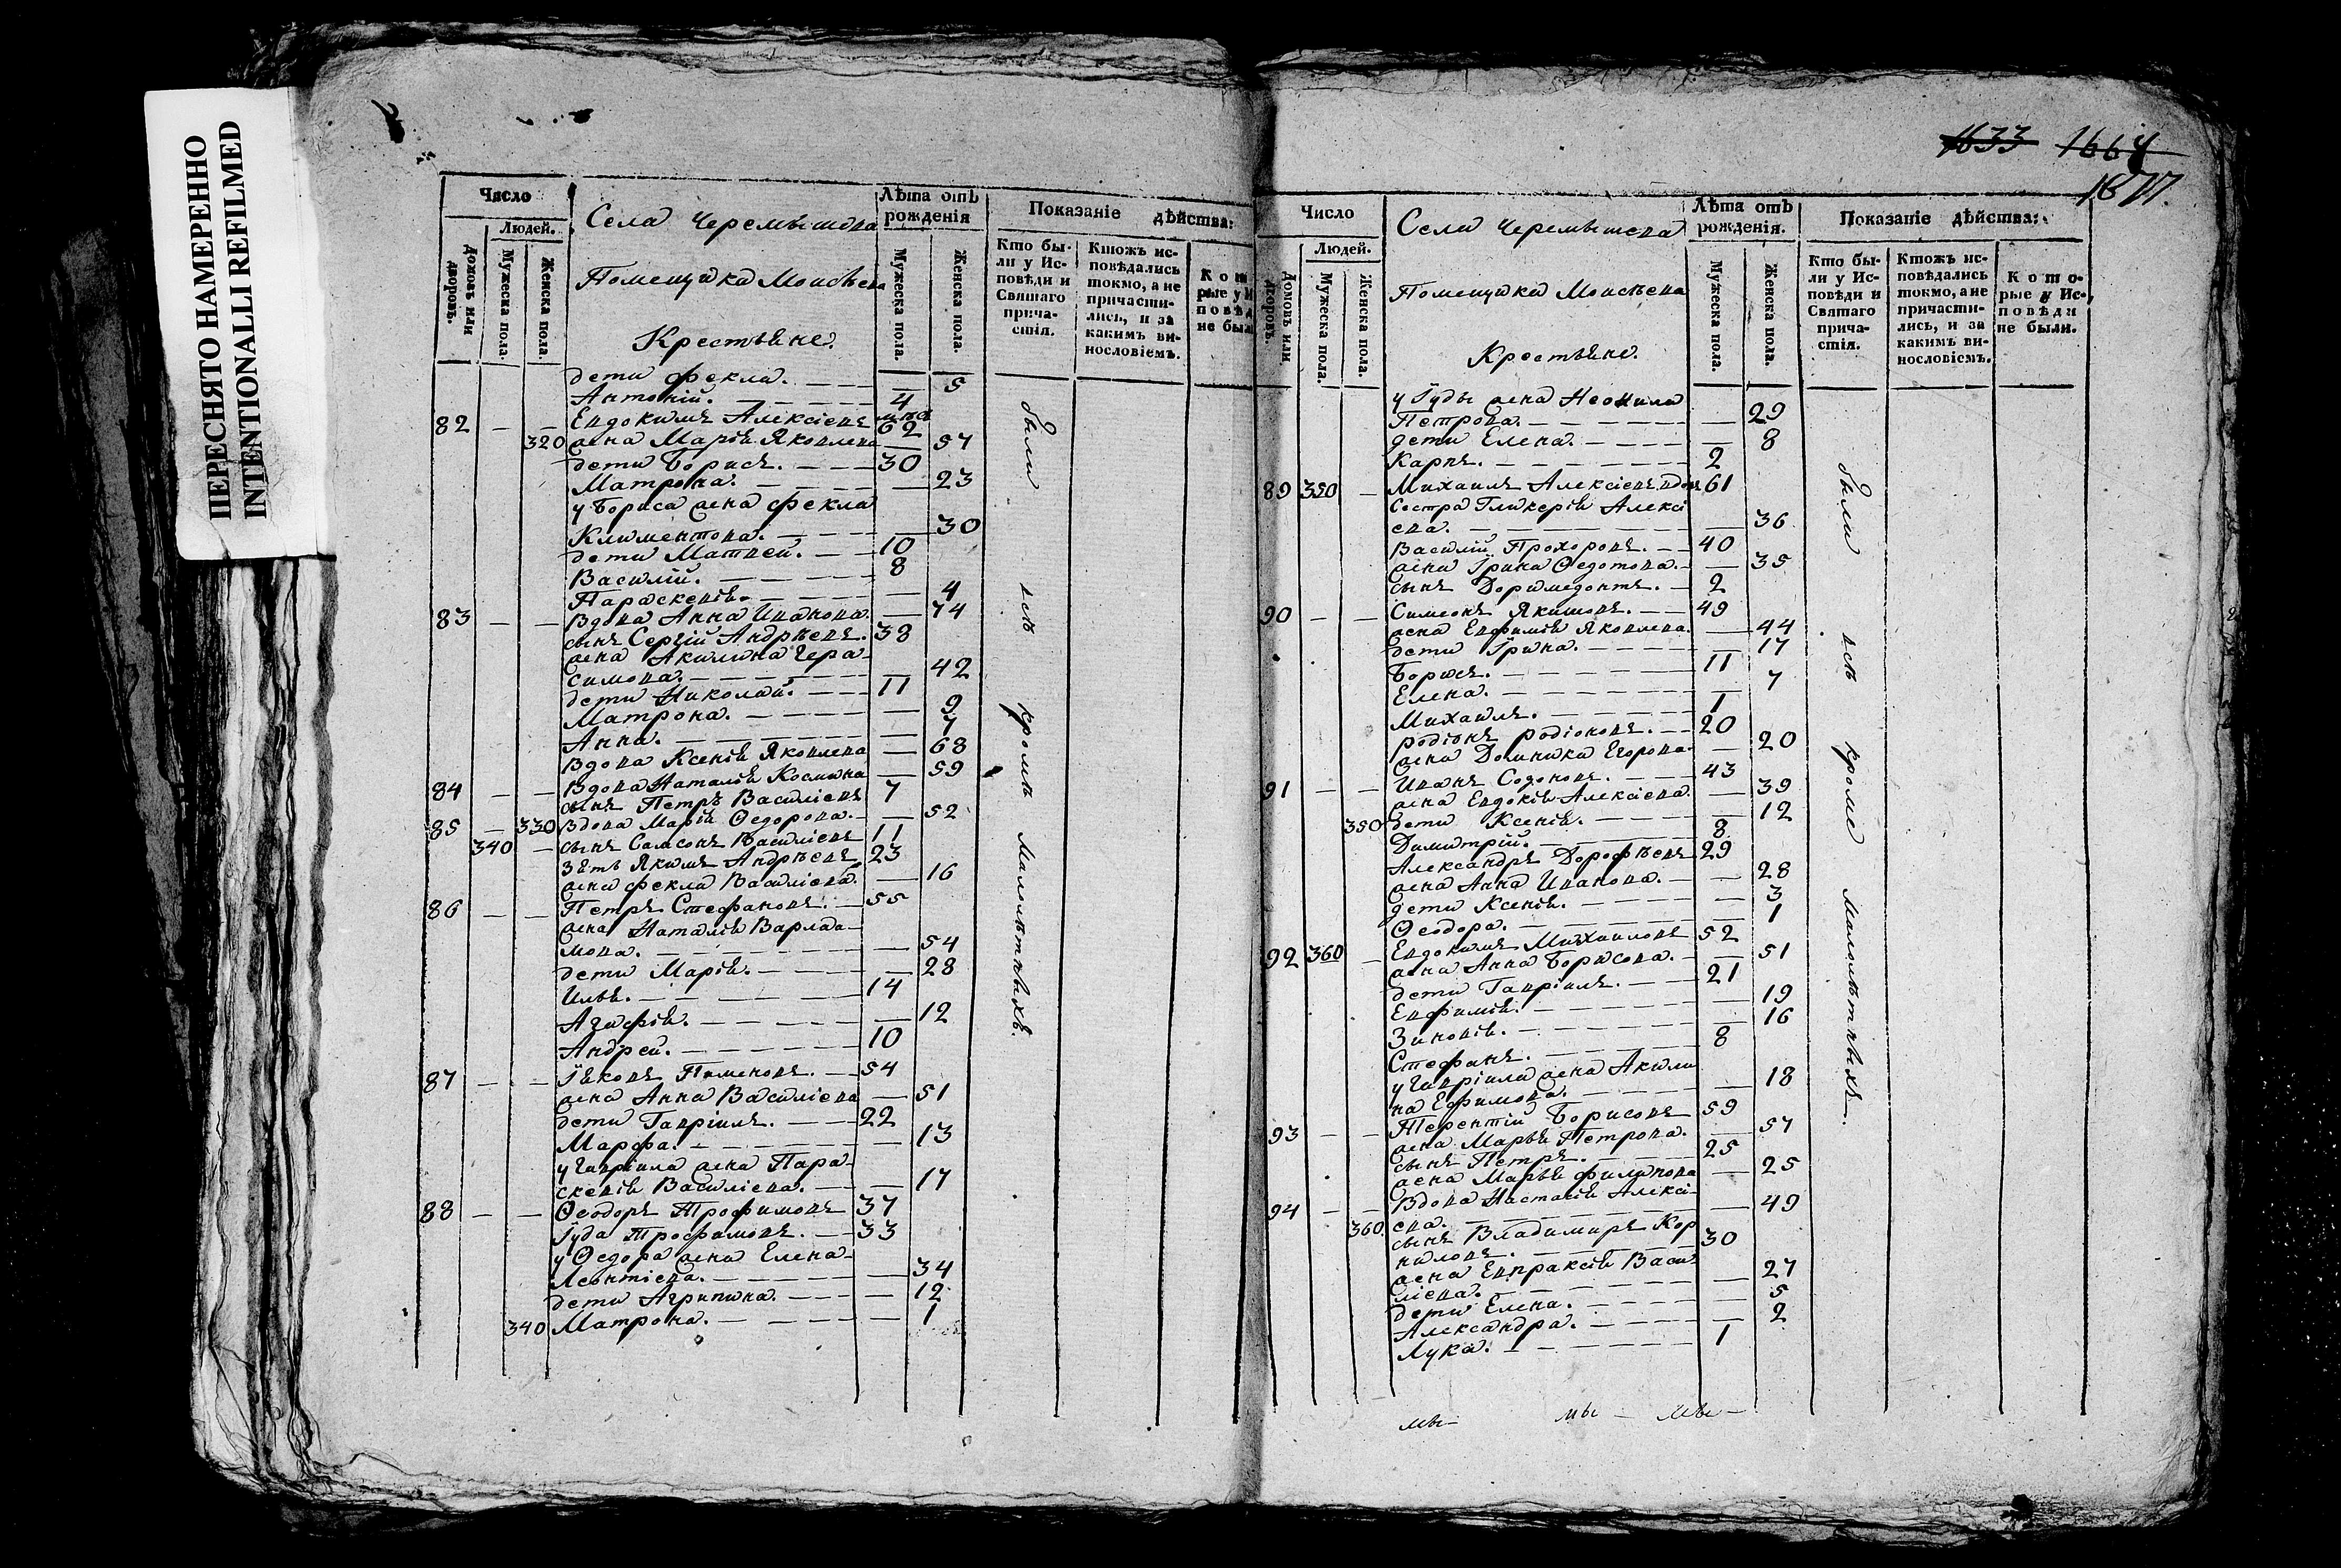 ПЕРЕСНЯТО НАМЕРЕННО
INTENTIONALLI REFILMED
Число
Людей.
Домовъ или дворовъ.
Мужеска пола.
Женска пола.
Села Черемышева
Помещика Моисѣева
Крестьяне.
Лѣта отъ рожденія
Мужеска пола.
Женска пола.
Показаніе дѣйства:
Кто бы-
ли у Ис-
повѣди и
Святаго
прича-
стія.
Ктожъ ис-
повѣдались
токмо, а не
причасти-
лись, и за
какимъ ви-
нословіемъ.
Кот
рые у И
повѣд
не был
дети Фекла. — 5
Антоній. 4
82 — — Евдокимъ Алексіевъ 62
320 жена Марія Яковлева — 57
дети Борисъ. 30
Матрона. — 23
у Бориса жена Фекла
Климентова. — 30
дети Матвей. 10
Василій. 8
Параскевія. — 4
83 — — Вдова Анна Иванова. — 74
сынъ Сергій Андрѣевъ. 38
жена Акилина Гера-
симова. — 42
дети Николай. 11
Матрона. — 9
Анна. — 7
Вдова Ксенія Яковлева — 68
84 — — Вдова Наталія Космина — 59
сынъ Петръ Василіевъ 7
85 — 330 Вдова Марія Ѳедорова. — 52
340 — сынъ Самсонъ Василіевъ 11
зять Якимъ Андрѣевъ 23
жена Фекла Василіева. — 16
86 — — Петръ Стефановъ. 55
жена Наталія Варлаа-
мова. — 54
дети Марія. — 28
Илья. 14
Агафія. — 12
Андрей. 10
87 — — Іяковъ Пименовъ. 54
жена Анна Василіева — 51
дети Гавріилъ. 22
Марфа. — 13
у Гавріила жена Пара-
скевія Василіева. — 17
88 — — Ѳеодоръ Трофимовъ 37
Іуда Трофимовъ. 33
у Ѳедора жена Елена
Леонтіева. — 34
дети Агрипина. — 12
340 Матрона. — 1
были всѣ кромѣ малолѣтныхъ.
1633 1664
1677.
Число
Людей.
Домовъ или дворовъ.
Мужеска пола.
Женска пола.
Села Черемышева
Помещика Моисѣева
Крестьяне.
Лѣта отъ рожденія.
Мужеска пола.
Женска пола.
Показаніе дѣйства:
Кто бы-
ли у Ис-
повѣди и
Святаго
прича-
стія.
Ктожъ ис-
повѣдались
токмо, а не
причасти-
лись, и за
какимъ ви-
нословіемъ.
Кото-
рые у Ис-
повѣди
не были.
у Іуды жена Неонила
Петрова. — 29
дети Елена. — 8
Карпъ. 2
89 350 — Михаилъ Алексіевъ вдовъ 61
Сестра Гликерія Алексі
ева. — 36
Василій Прохоровъ. 40
жена Ірина Ѳедотова. — 35
сынъ Доримедонтъ. 2
90 — — Симеонъ Якимовъ. 49
жена Евфимія Яковлева. — 44
дети Ірина. — 17
Борисъ. 11
Елена. — 7
Михаилъ. 1
Родіонъ Родіоновъ. 20
жена Домника Егорова — 20
91 — — Иванъ Созоновъ. 43
жена Евдокія Алексіева. — 39
350 дети Ксенія. — 12
Димитрій. 8
Александръ Дорофѣевъ 29
жена Анна Иванова. — 28
дети Ксенія. — 3
Ѳеодора. — 1
92 360 — Евдокимъ Михаиловъ 52
жена Анна Борисова. — 51
дети Гавріилъ. 21
Евфимія. — 19
Зиновія. — 16
Стефанъ. 8
у Гавріила жена Акили
на Ефимова. — 18
93 — — Терентій Борисовъ 59
жена Марья Петрова. — 57
сынъ Петръ. 25
жена Марья Филипова — 25
94 — — Вдова Настасія Алексі-
ева. — 49
360. сынъ Владимиръ Кор
ниловъ. 30
жена Евпраксія Васи
ліева. — 27
дети Елена. — 5
Александра. — 2
Лука. 1
были всѣ кроме малолѣтныхъ.
мы — мы — мы —